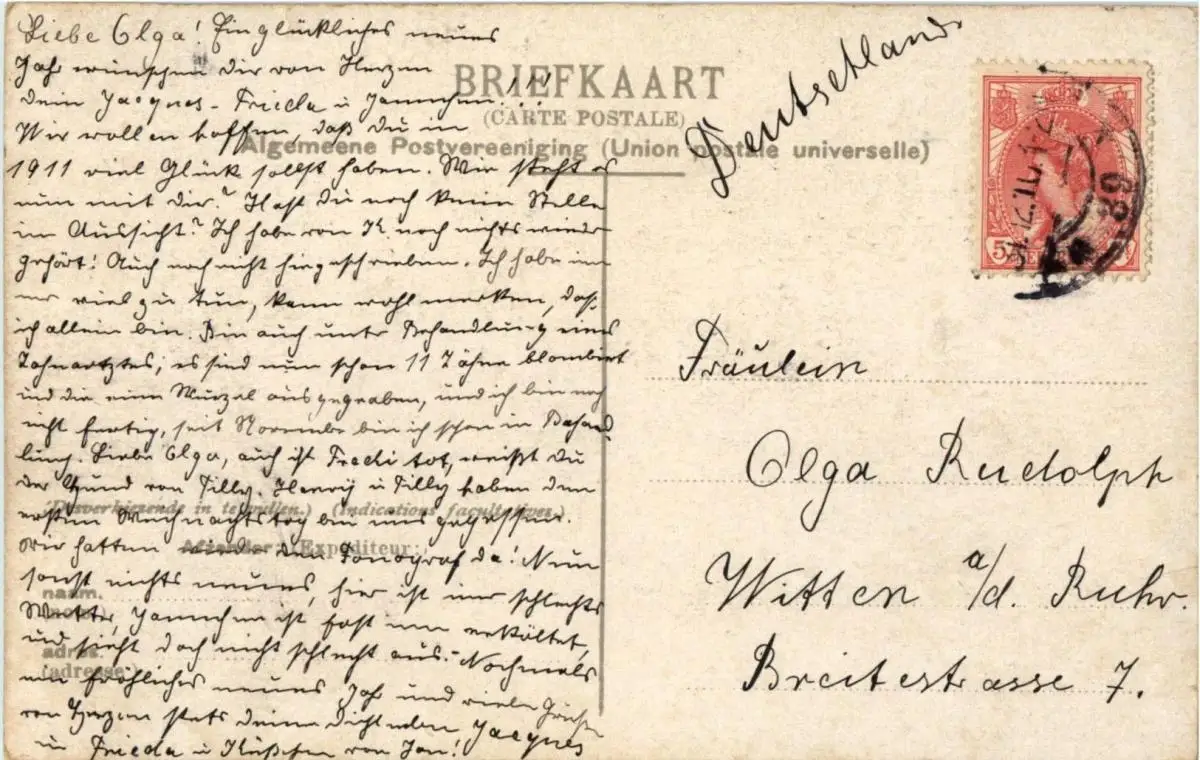 Liebe Olga! Ein glückliches neues
Jahr wünschen Dir von Herzen
Dein Jacques - Frieda u Jannchen!!!
Wir wollen hoffen, daß Du in
1911 viel Glück sollst haben. Wie steht es
nun mit Dir? Hast Du noch keine Stelle
in Aussicht? Ich habe von K. noch nichts wieder
gehört! Auch noch nicht hingeschrieben. Ich habe im
mer viel zu tun, kann wohl merken, daß
ich allein bin. Bin auch unter Behandlung eines
Zahnartztes, es sind nun schon 11 Zähne blombiert
und die eine Wurzel ausgegraben, und ich bin noch
nicht fertig, seit November bin ich schon in Behand
lung. Liebe Olga, auch ist Fredi tot, weißt Du
der Hund von Tilly. Henrij u Tilly haben den
ersten Weihnachtstag bei uns gegessen.
Wir hatten den Fonograf da! Nun
sonst nichts neues, hier ist nur schlechtes
Wetter, Jannchen ist fast nun erkältet,
und sieht doch nicht schlecht aus. Nochmals
ein fröhliches neues Jahr und viele Grüße
von Herzen stets Deine Dich Jacques
u Frieda u Küßchen von Jan!
BRIEFKAART
(CARTE POSTALE)
Algemeene Postvereeniging (Union postale universelle)
(Indications facultatives.)
Afzender: (Expediteur:)
naam.
(nom.)
adres.
(adresse.)
Deutschland
31.12.10
5
CENT
Fräulein
Olga Rudolph
Witten a/d. Ruhr.
Breitestrasse 7.